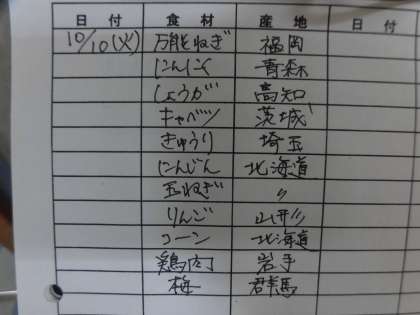 日付 食材 産地 日付
10/10(火) 万能ねぎ 福岡
にんにく 青森
しょうが 高知
キャベツ 茨城
きゅうり 埼玉
にんじん 北海道
玉ねぎ 〃
りんご 山形
コーン 北海道
鶏肉 岩手
梅 群馬